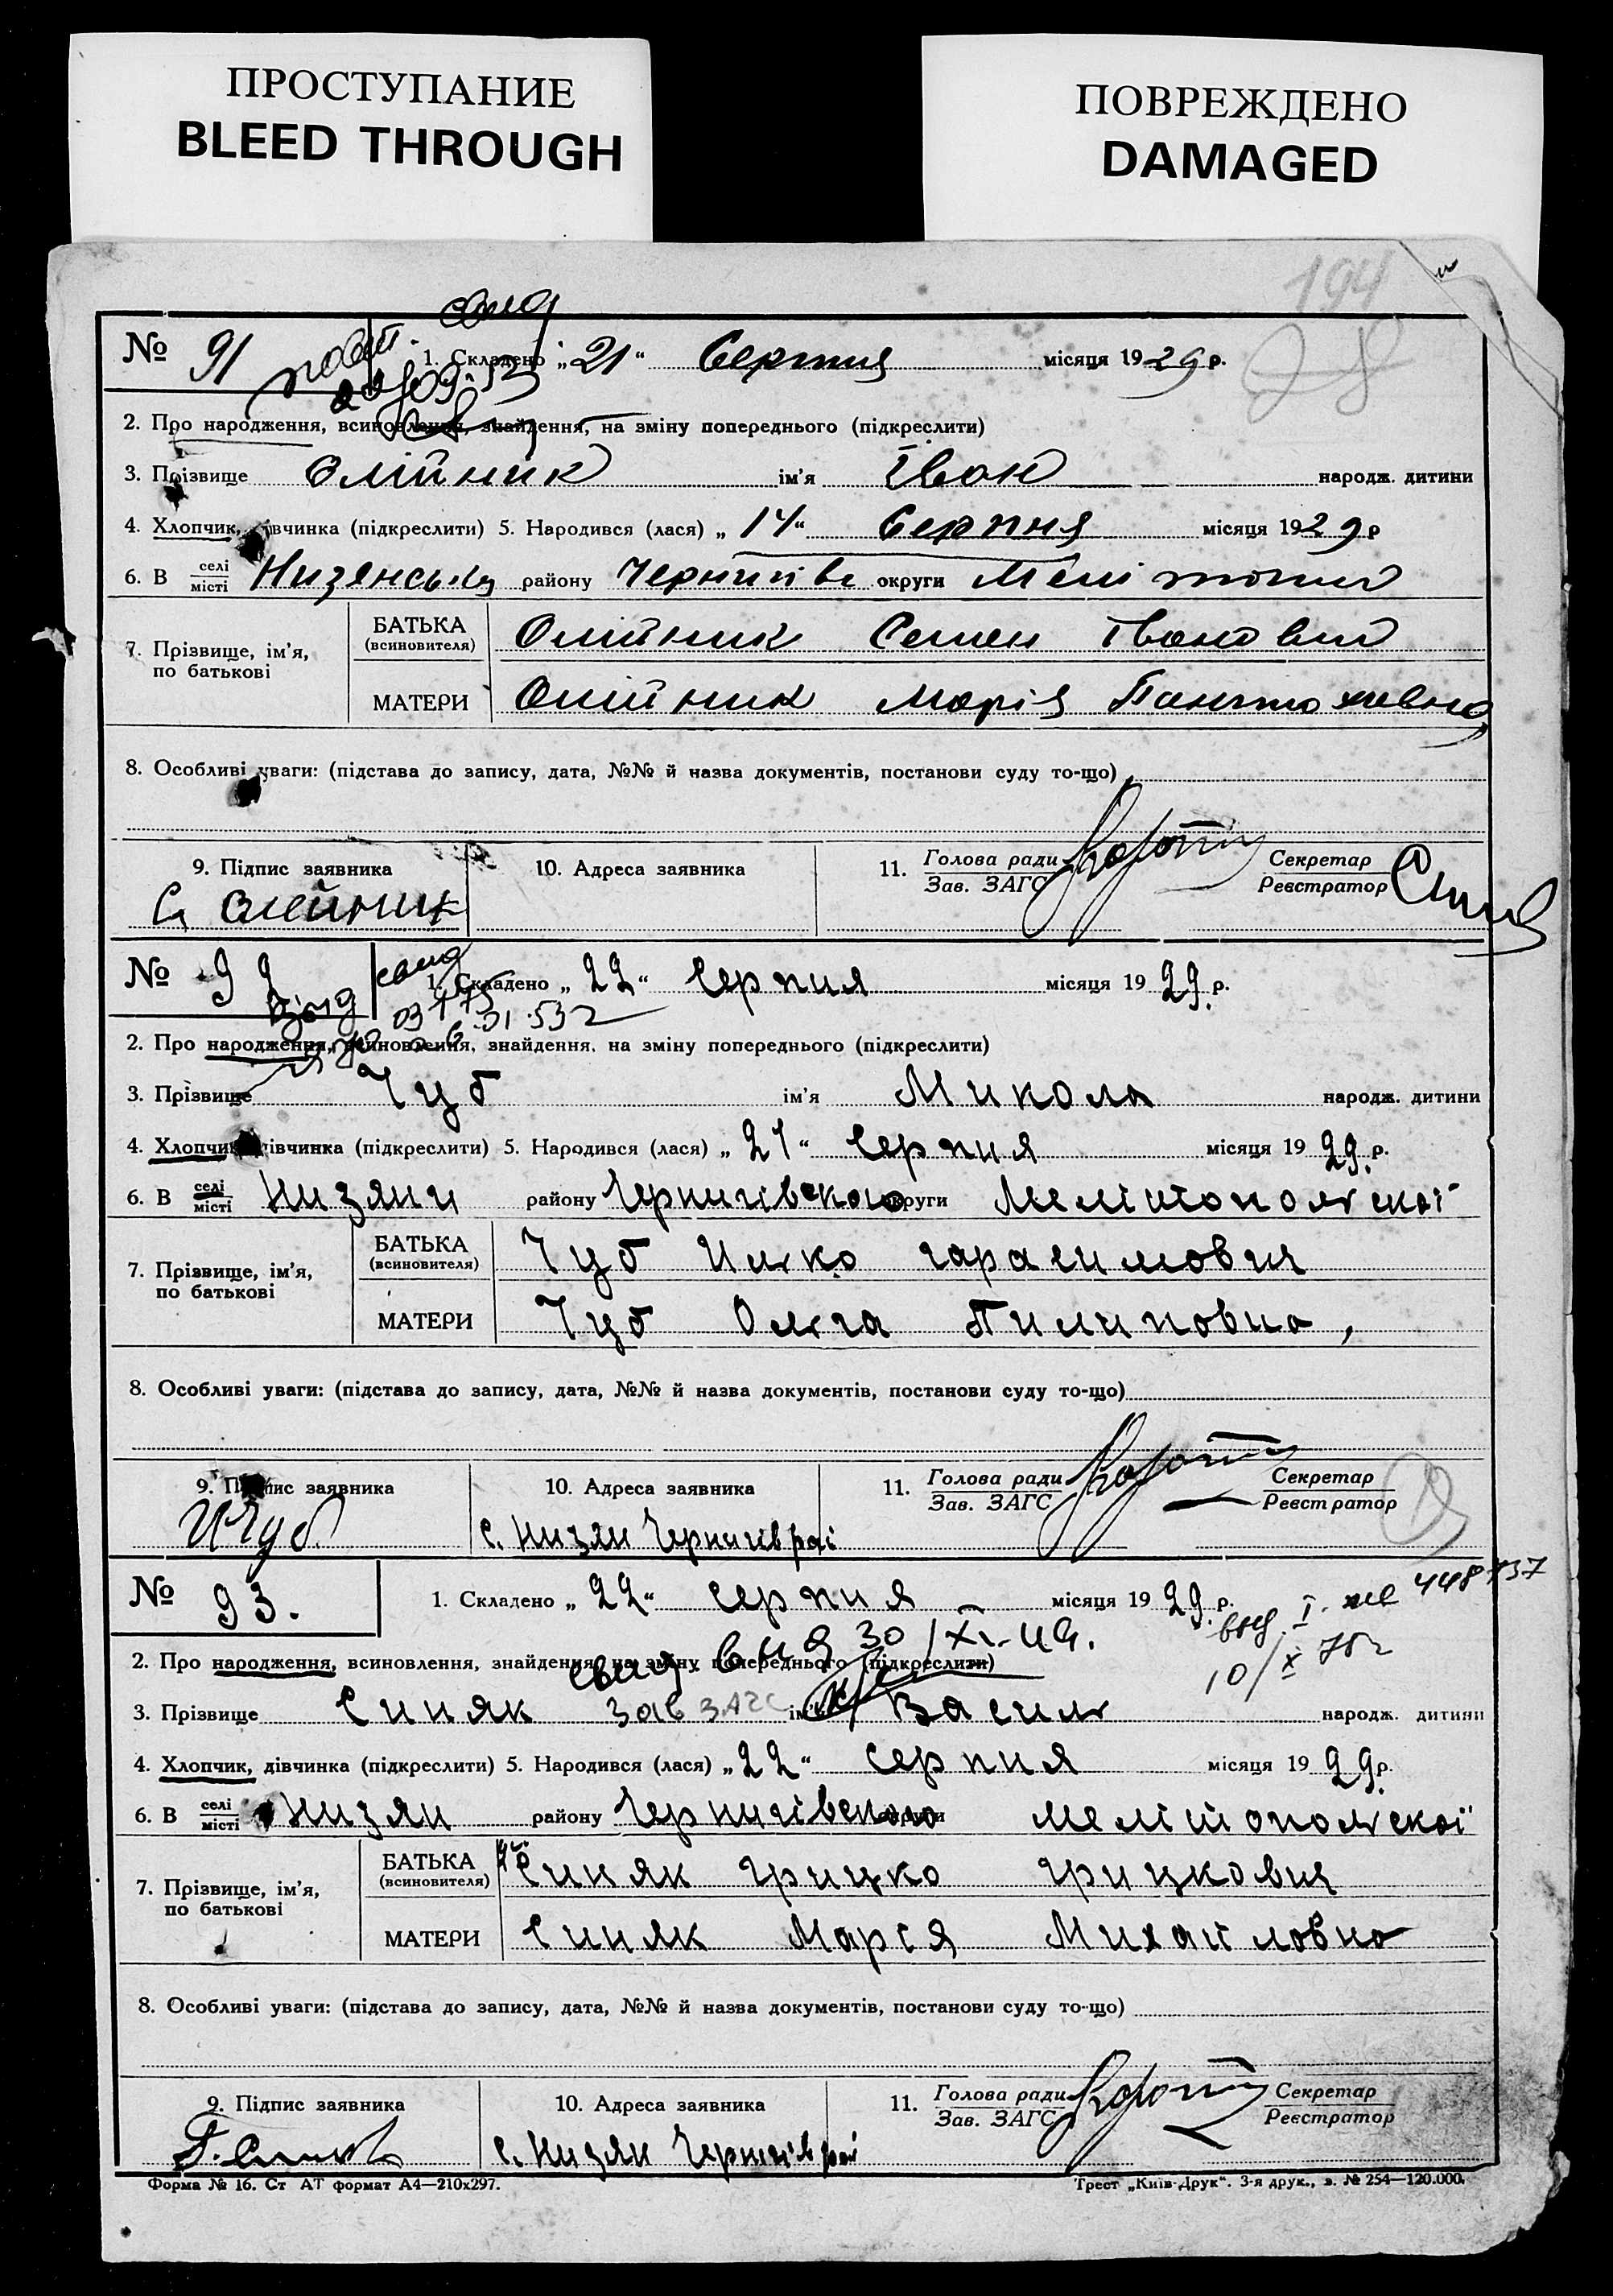 ПРОСТУПАНИЕ
BLEED THROUGH
ПОВРЕЖДЕНО
DAMAGED
194
№ 91
1. Складено „21“ Серпня місяця 1929 р.
2. Про народження, всиновлення, знайдення, на зміну попереднього (підкреслити)
3. Прізвище Олійник ім'я Іван народж. дитини
4. Хлопчик, дівчинка (підкреслити) 5. Народився (лася) „14“ Серпня місяця 1929 р
6. В селі місті району округи
7. Прізвище, ім'я, по батькові
БАТЬКА (всиновителя) Олійник Семен Іванович
МАТЕРИ Олійник Марія
8. Особливі уваги: (підстава до запису, дата, №№ й назва документів, постанови суду то-що)
9. Підпис заявника
10. Адреса заявника
11. Голова ради Зав. ЗАГС
Секретар Реєстратор
С Олейник
№ 92
1. Складено „22“ Серпня місяця 1929. р.
2. Про народження, всиновлення, знайдення, на зміну попереднього (підкреслити)
3. Прізвище Чуб ім'я Микола народж. дитини
4. Хлопчик, дівчинка (підкреслити) 5. Народився (лася) „21“ Серпня місяця 1929. р.
6. В селі місті Низяни району Чернигівского округи Мелітопольскої
7. Прізвище, ім'я, по батькові
БАТЬКА (всиновителя) Чуб Илько Гарасимович
МАТЕРИ Чуб Ольга Пилиповна,
8. Особливі уваги: (підстава до запису, дата, №№ й назва документів, постанови суду то-що)
9. Підпис заявника
10. Адреса заявника
11. Голова ради Зав. ЗАГС
Секретар Реєстратор
ИЧуб
с. Низяни
№ 93.
1. Складено „22“ Серпня місяця 1929. р.
448737
10/X 75г
2. Про народження, всиновлення, знайдення, на зміну попереднього (підкреслити)
свид. выд 30/XI-49.
3. Прізвище Синяк Зав ЗАГС ім'я Василь народж. дитини
4. Хлопчик, дівчинка (підкреслити) 5. Народився (лася) „22“ Серпня місяця 1929. р.
6. В селі місті Низян району Чернигівского округи Мелітопольскої
7. Прізвище, ім'я, по батькові
БАТЬКА (всиновителя) Синяк Грицко Грицкович
МАТЕРИ Синяк Марія Михайловна
8. Особливі уваги: (підстава до запису, дата, №№ й назва документів, постанови суду то-що)
9. Підпис заявника
10. Адреса заявника
11. Голова ради Зав. ЗАГС
Секретар Реєстратор
с. Низян
Форма № 16. Ст АТ формат А4—210х297.
Трест „Київ-Друк“. 3-я друк., з. № 254—120.000.